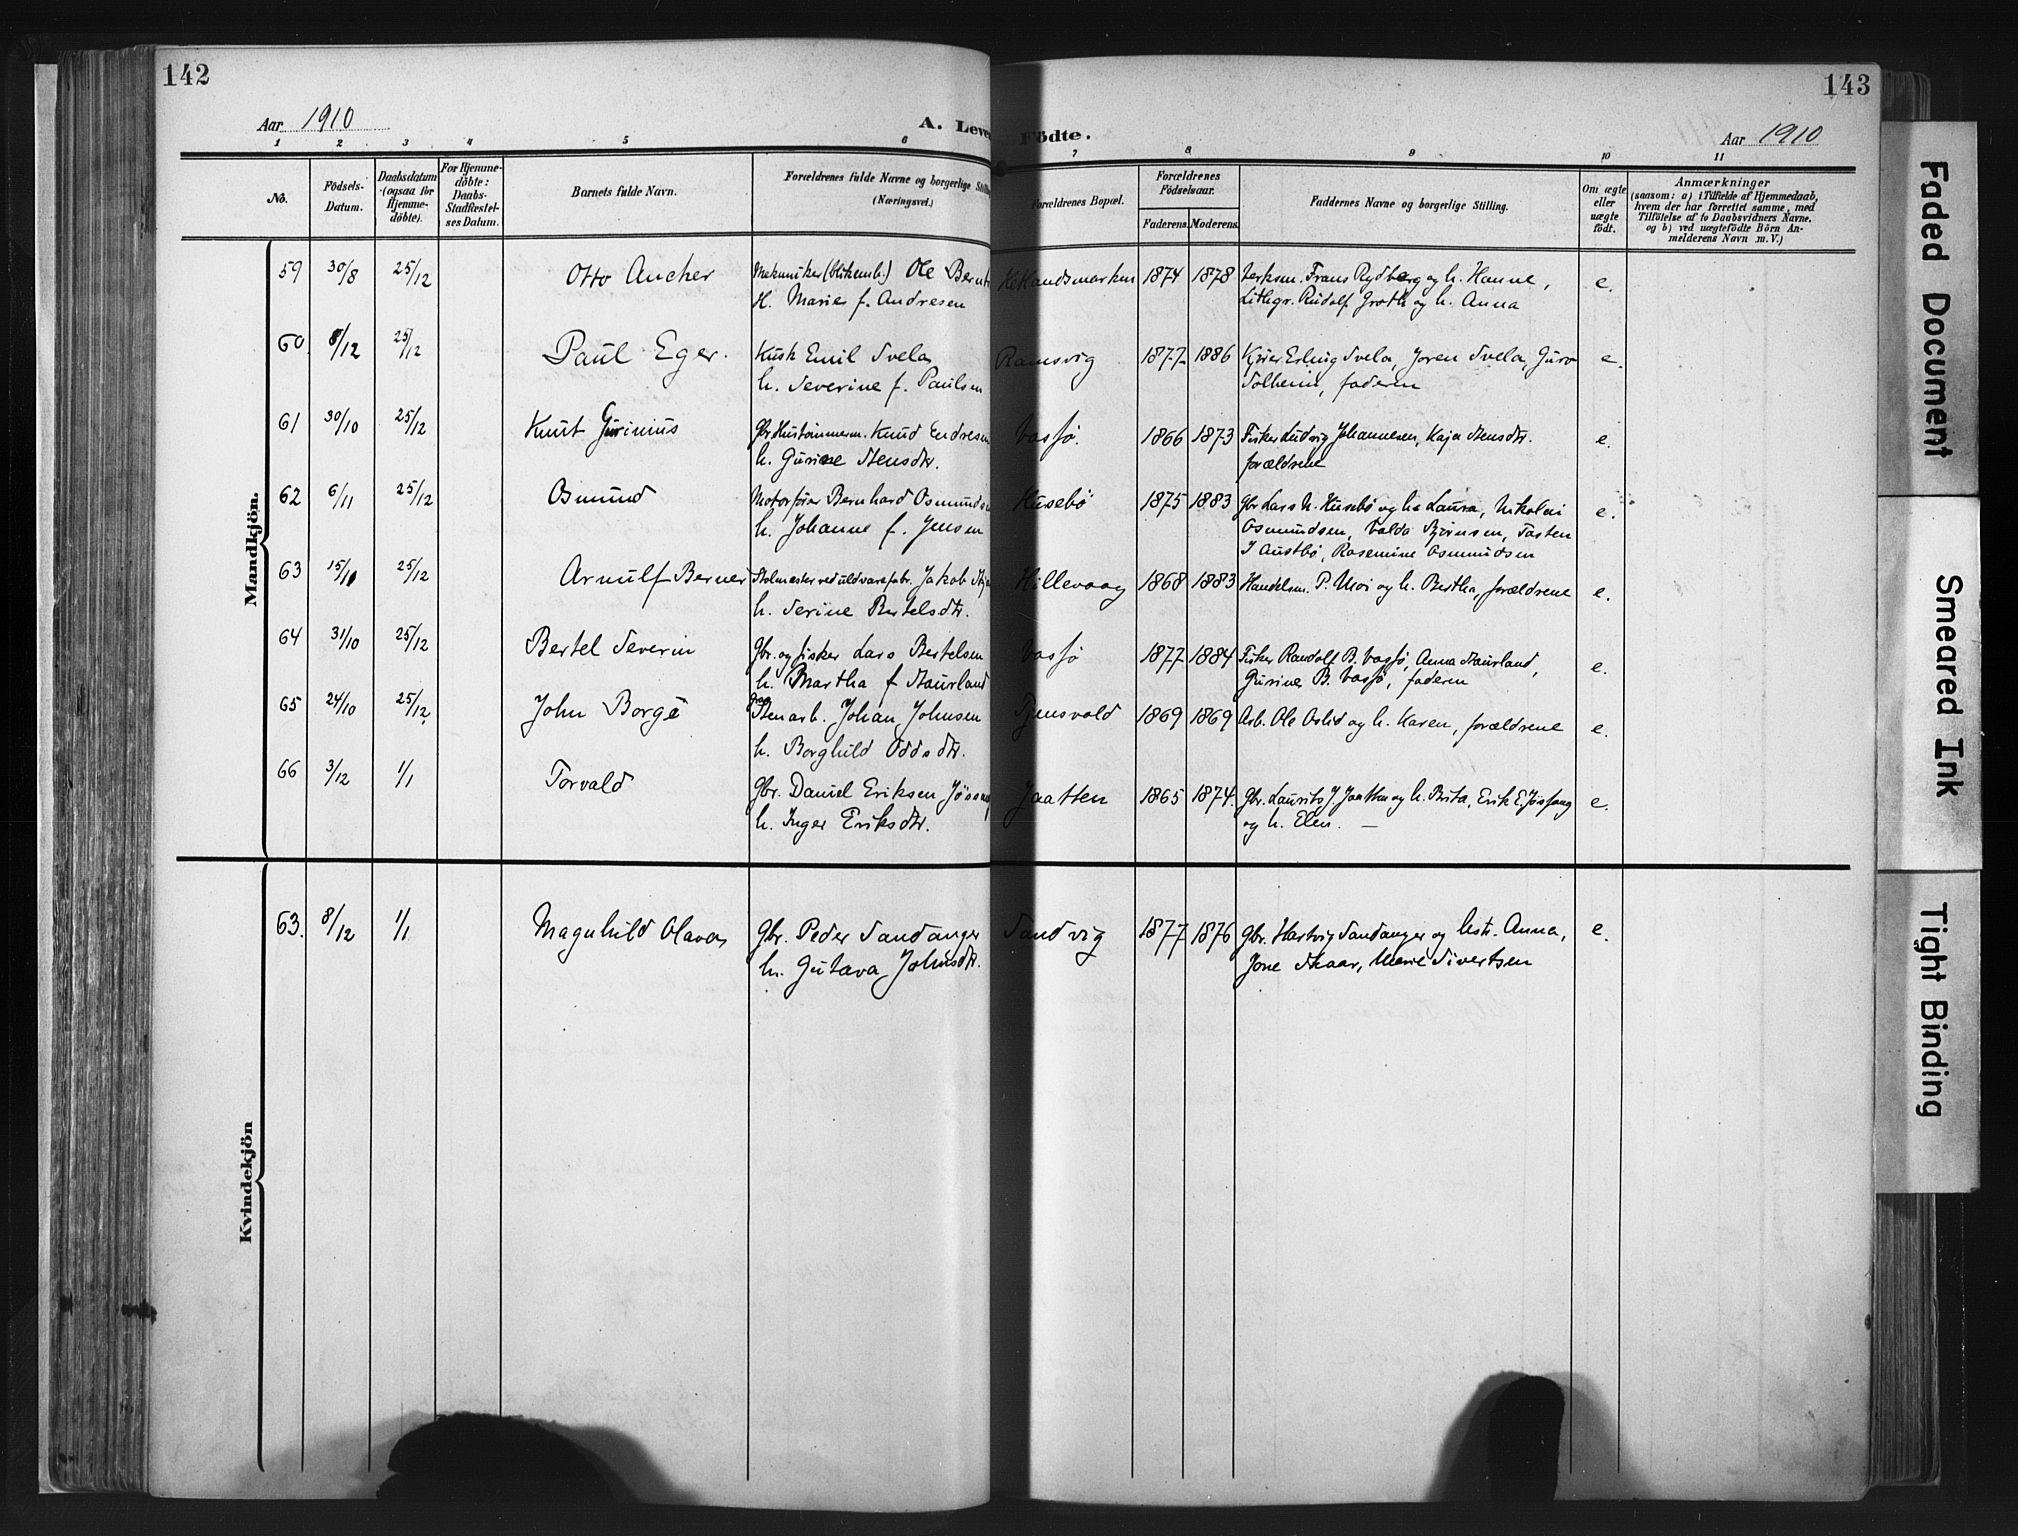 142
143
Aar 1910
A. Leve
Födte.
Aar 1910
1 2 3 4 5 6 7 8 9 10 11
No.
Födsels-
Datum.
Daabsdatum
(ogsaa for
Hjemme-
döbte).
For Hjemme-
döbte:
Daabs-
Stadfæstel-
ses Datum.
Barnets fulde Navn.
Forældrenes fulde Navne og borgerlige Stilling
(Næringsvei.)
Forældrenes Bopæl.
Forældrenes
Födselsaar.
Faderens. Moderens.
Faddernes Navne og borgerlige Stilling.
Om ægte
eller
uægte
födt.
Anmærkninger
(saasom: a) i Tilfælde af Hjemmedaab,
hvem der har forrettet samme, med
Tilföielse af to Daabsvidners Navne.
og b) ved uægtefödte Börn An-
melderens Navn m. V.)
Mandkjön.
59 30/8 25/12 Otto Ancher Mekaniker (blikemb.) Ole Bernt Hetlandsmarken 1874 1878 Frans Rydberg og h. Hanne, e.
H. Marie f. Andresen Lithgr. Rudolf Groth og h. Anna
60. 8/12 25/12 Paul Eger. Kusk Emil Svela Ramsvig 1877 1886 Erling Svela, Joren Svela, Guro e.
h. Severine f. Paulsen Solheim, faderen
61 30/10 25/12 Knut Gurinius Gbr. Hustömmerm. Knud Endresen Vassö. 1866 1873 Fisker Ludvig Johannesen, Kaja Stensdtr. e.
h. Gurine Stensdtr. forældrene
62 6/11 25/12 Osmund Motorförer Bernhard Osmundsen Husebö 1875 1883 Gbr. Lars N. Husebö og h. Laura, Nikolai e.
h. Johanne f. Jensen Osmundsen, Valda Björnsen, Tasten
J Austbö, Rasemine Osmundsen
63 15/10 25/12 Arnulf Berner ved uldvarefabr. Jakob Hillevaag 1868 1883 Handelsm. P. Moi og h. Bertha, forældrene e.
h. Serine Bertelsdtr.
64 31/10 25/12 Bertel Severin Gbr. og fisker Lars Bertelsen Vassö 1877 1884 Fisker Randolf B. Vassö, Anna Staurland, e.
h. Martha f Staurland Gurine B. Vassö, faderen
65 24/10 25/12. John Borge Stenarb. Johan Johnsen Tjensvold 1869 1869 Arb. Ole Oslid og h. Karen, forældrene e.
h. Borghild Oddsdtr.
66 3/12 1/1 Torvald Gbr. Daniel Eriksen Jaatten 1865 1874 Gbr. Laurits J. Jaatten og h. Brita, Erik E. Jössang e.
h. Inger Eriksdtr. og h. Elen. —
Kvindekjön
63. 8/12 1/1 Magnhild Olava Gbr. Peder Sandanger Sandvig 1877 1876 Gbr. Hartvig Sandanger og hstr. Anna, e.
h. Gutava Johnsdtr. Jone Skaar, Marie Sivertsen
Faded Document
Smeared Ink
Tight Binding